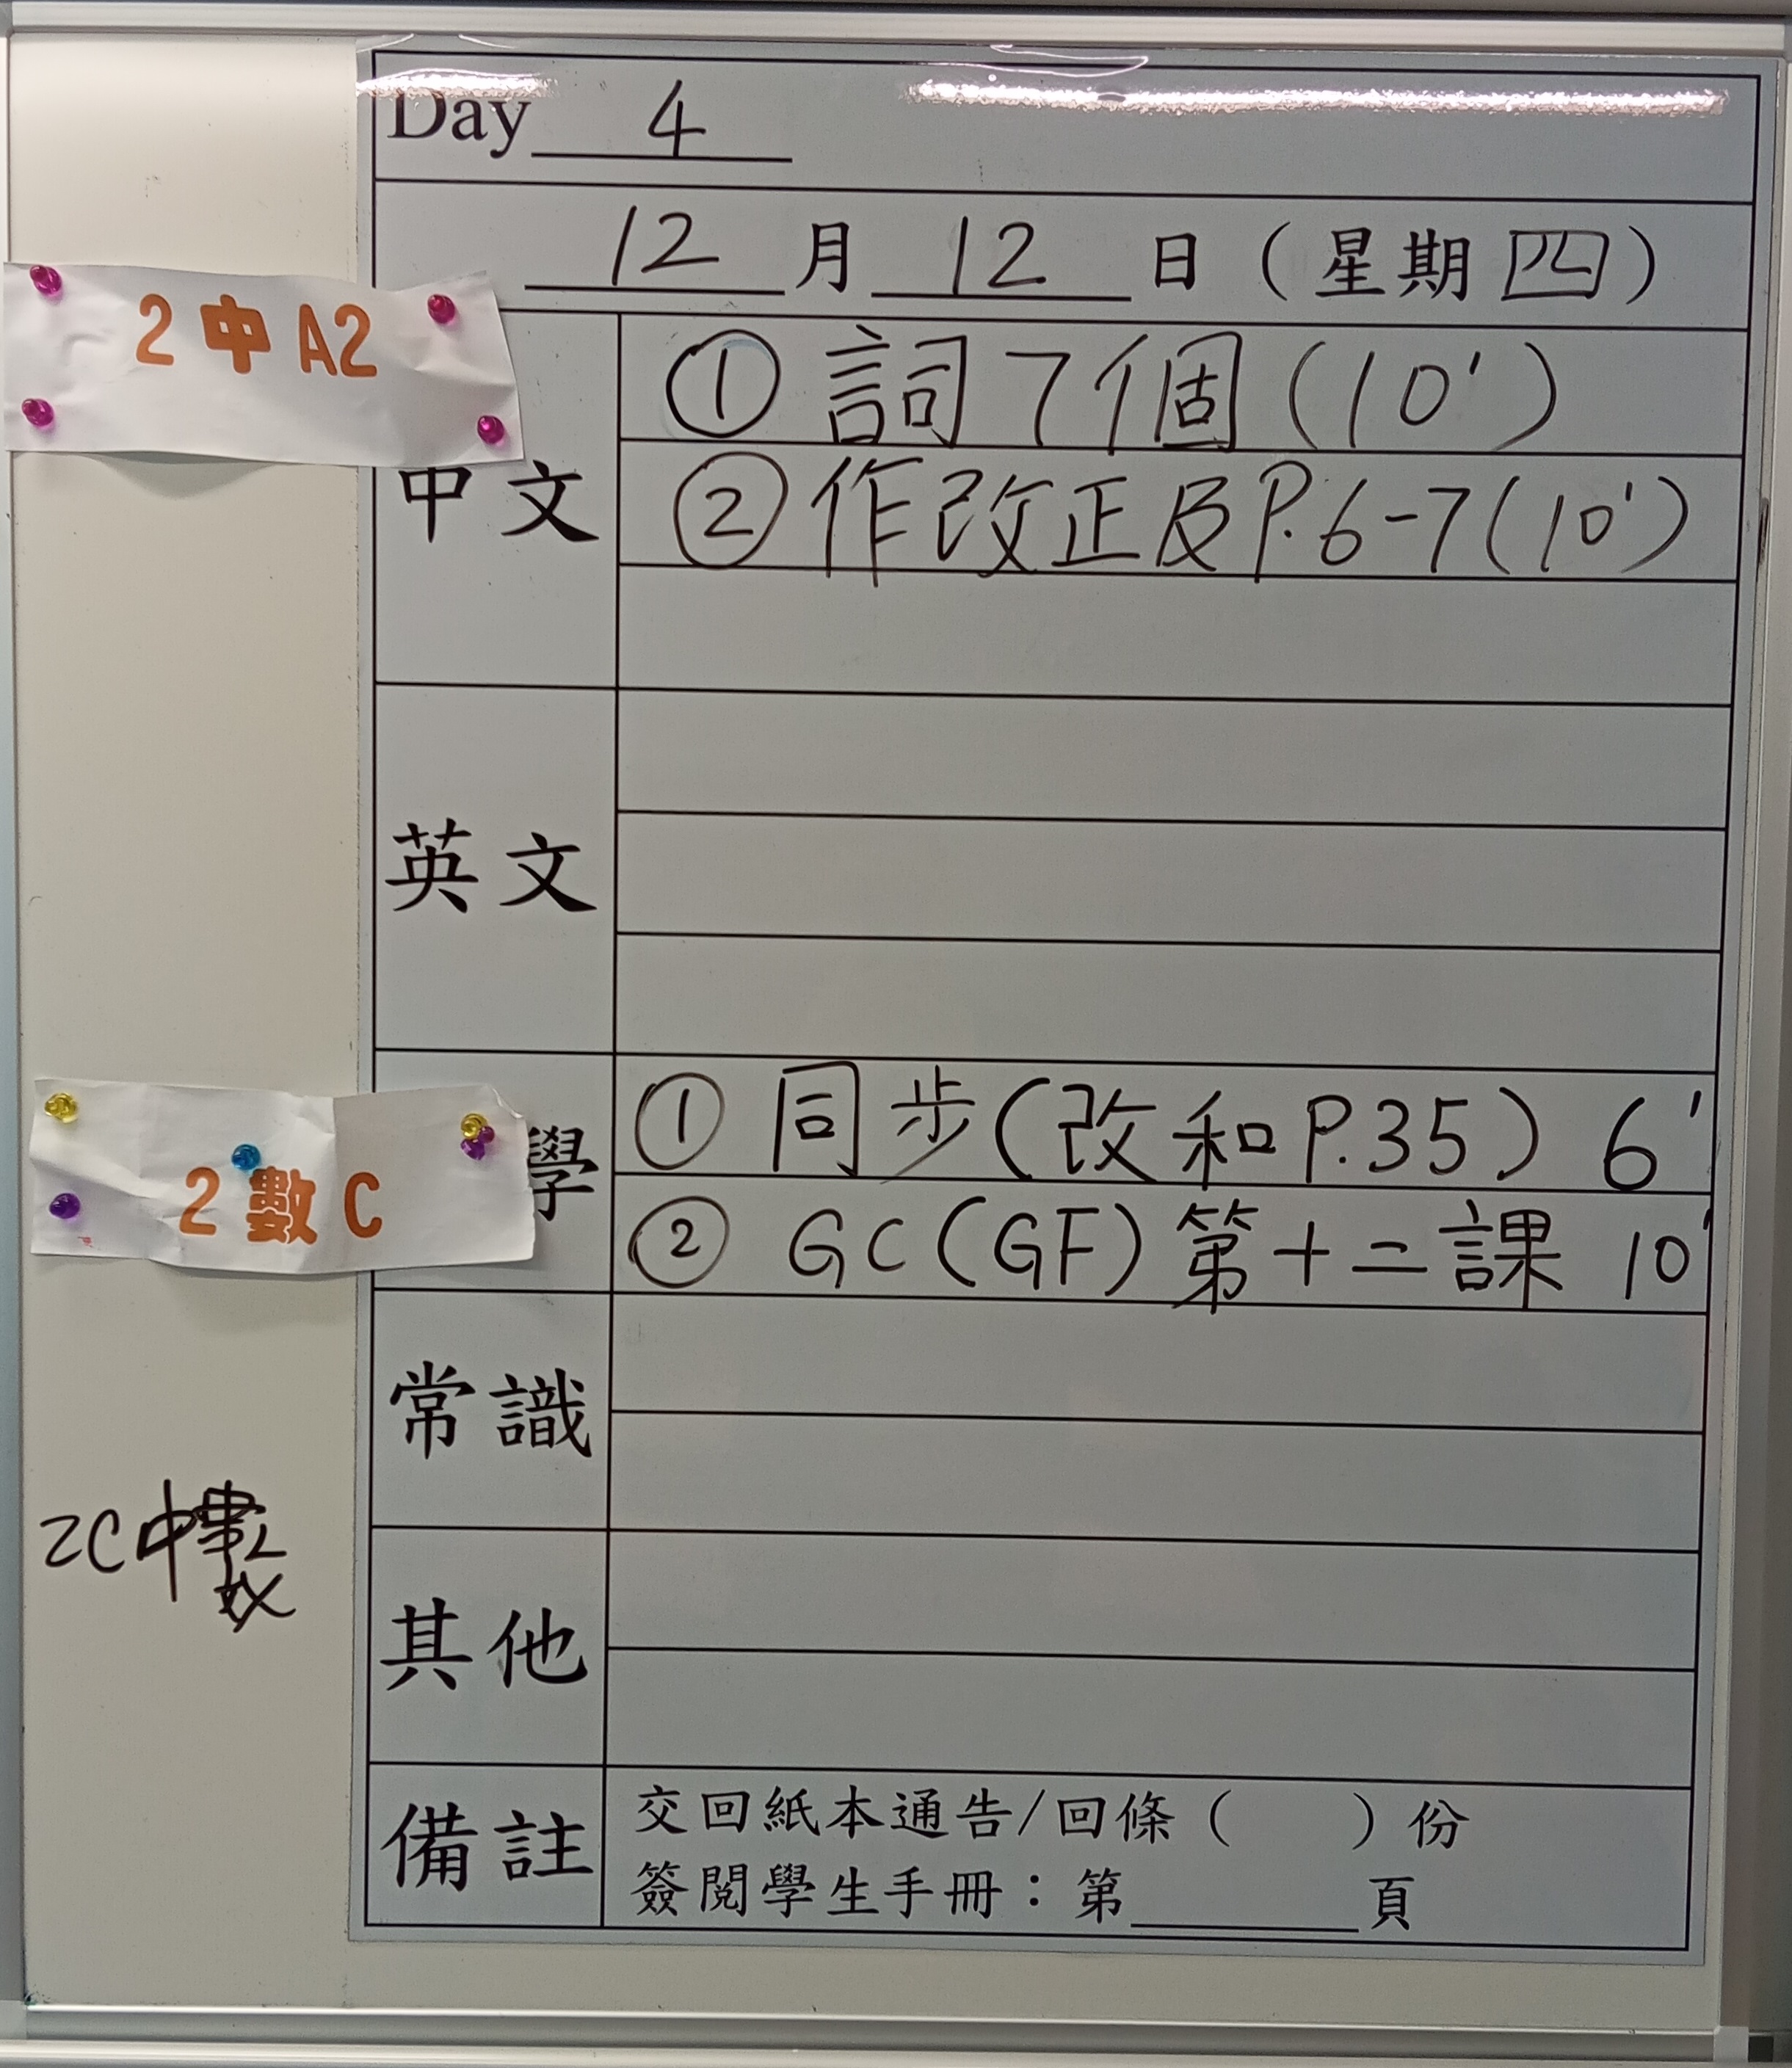 Day 4
12 月 12 日 (星期四)
2 中 A2
中文
① 詞7個(10')
② 作改正及P.6-7(10')
英文
2 數 C
學
① 同步(改和P.35) 6'
② GC(GF)第十二課 10'
常識
2C中數
其他
備註
交回紙本通告/回條( )份
簽閱學生手冊：第______頁